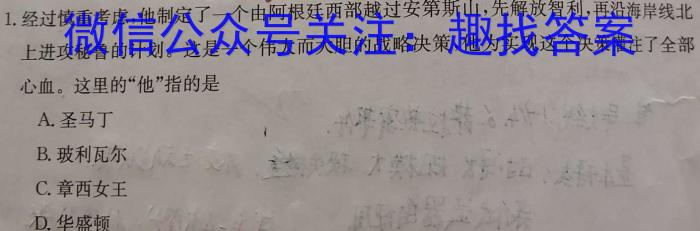 1. 经过慎重考虑,他制定了一个由阿根廷西部越过安第斯山,先解放智利,再沿海岸线北
上进攻秘鲁的计划。这是一个伟大而大胆的战略决策,他为实现这个决策倾注了全部
微信公众号关注:趣找答案
心血。这里的“他”指的是
A. 圣马丁
B. 玻利瓦尔
C. 章西女王
D. 华盛顿